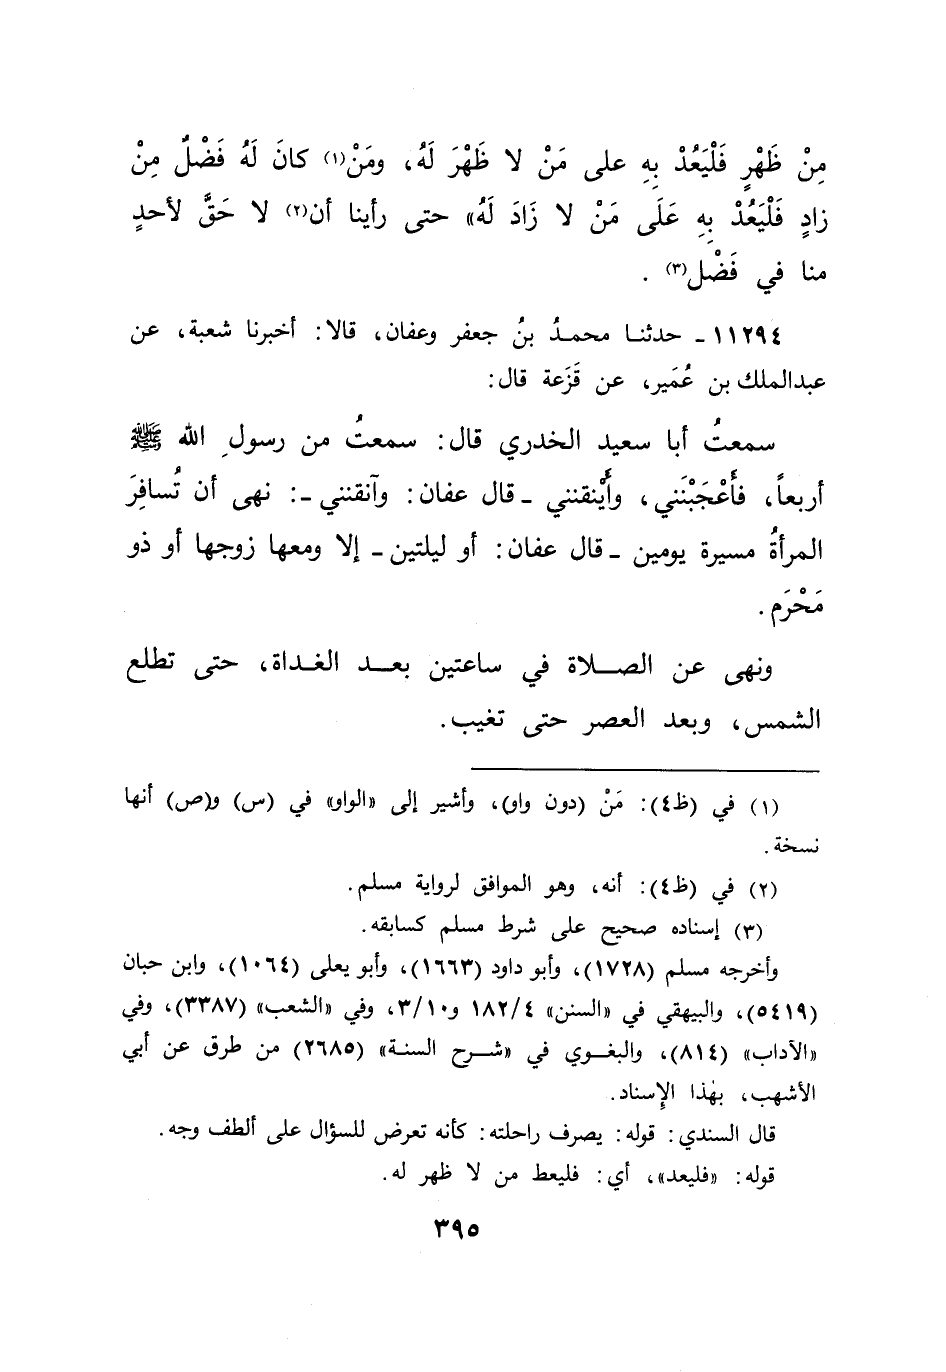 مِنْ ظَهْرٍ فَلْيَعُدْ بِهِ على مَنْ لا ظَهْرَ لَهُ، ومَنْ(١) كانَ لَهُ فَضْلٌ مِنْ
زادٍ فَلْيَعُدْ بِهِ عَلَى مَنْ لا زَادَ لَهُ» حتى رأينا أن(٢) لا حَقَّ لأحدٍ
منا في فَضْل(٣) .
١١٢٩٤ - حدثنا محمدُ بنُ جعفر وعفان، قالا: أخبرنا شعبة، عن
عبدالملك بن عُمَير، عن قَزَعة قال:
سمعتُ أبا سعيد الخدري قال: سمعتُ من رسولِ الله ﷺ
أربعاً، فأَعْجَبْنَني، وأَيْنقنني - قال عفان: وآنقنني -: نهى أن تُسافِرَ
المرأةُ مسيرة يومين - قال عفان: أو ليلتين - إلا ومعها زوجها أو ذو
مَحْرَم.
ونهى عن الصلاة في ساعتين بعد الغداة، حتى تطلع
الشمس، وبعد العصر حتى تغيب.
(١) في (ظ٤): مَنْ (دون واو)، وأشير إلى «الواو» في (س) و(ص) أنها
نسخة.
(٢) في (ظ٤): أنه، وهو الموافق لرواية مسلم.
(٣) إسناده صحيح على شرط مسلم كسابقه.
وأخرجه مسلم (١٧٢٨)، وأبو داود (١٦٦٣)، وأبو يعلى (١٠٦٤)، وابن حبان
(٥٤١٩)، والبيهقي في «السنن» ١٨٢/٤ و٣/١٠، وفي «الشعب» (٣٣٨٧)، وفي
«الآداب» (٨١٤)، والبغوي في «شرح السنة» (٢٦٨٥) من طرق عن أبي
الأشهب، بهٰذا الإِسناد.
قال السندي: قوله: يصرف راحلته: كأنه تعرض للسؤال على ألطف وجه.
قوله: «فليعد»، أي: فليعط من لا ظهر له.
٣٩٥